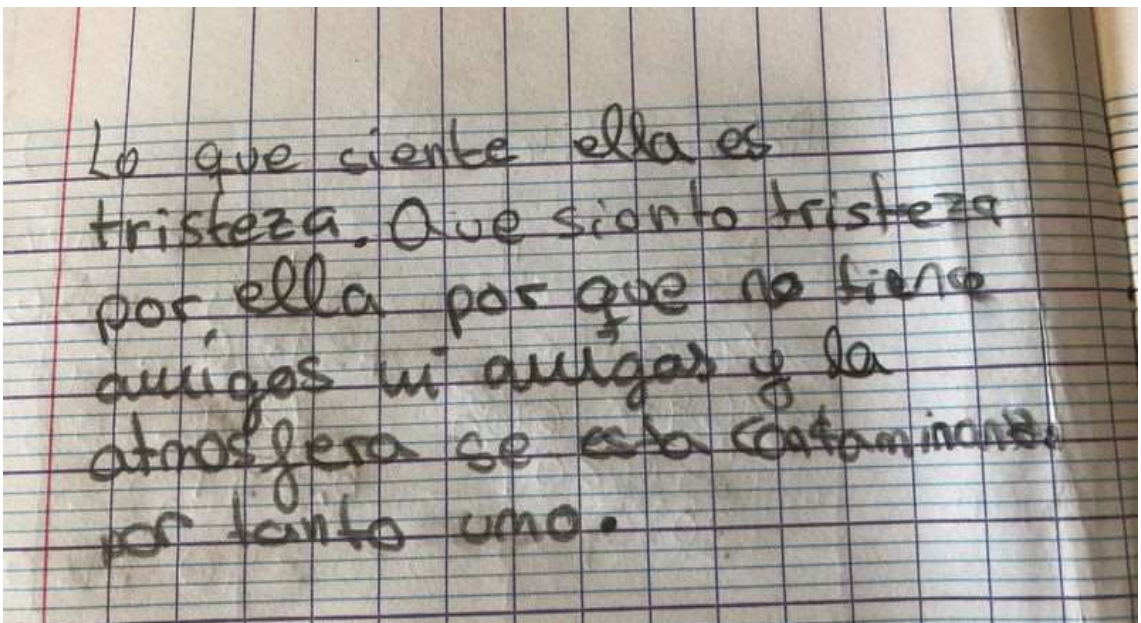 Lo que siente ella es
tristeza. Que sianto tristeza
por ella por que no tiene
amigos ni amigas y la
atmosfera se esta contaminando
por tanto umo.